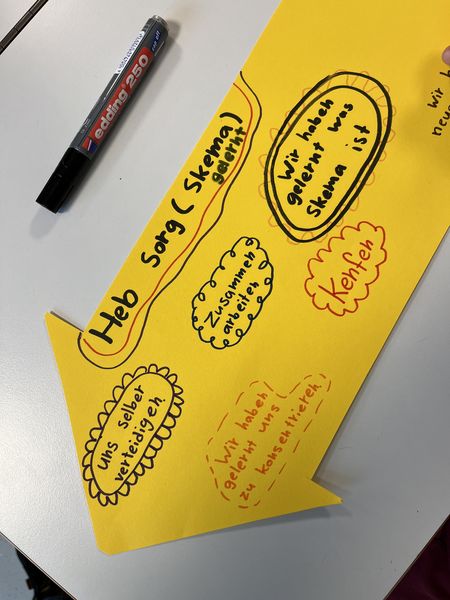 edding 250
Heb Sorg (Skema)
gelernt
Wir haben
gelernt was
Skema ist
Zusammen
arbeiten
Kenfen
uns selber
verteidigen
Wir haben
gelernt uns
zu konsentrieren
Wir
neue